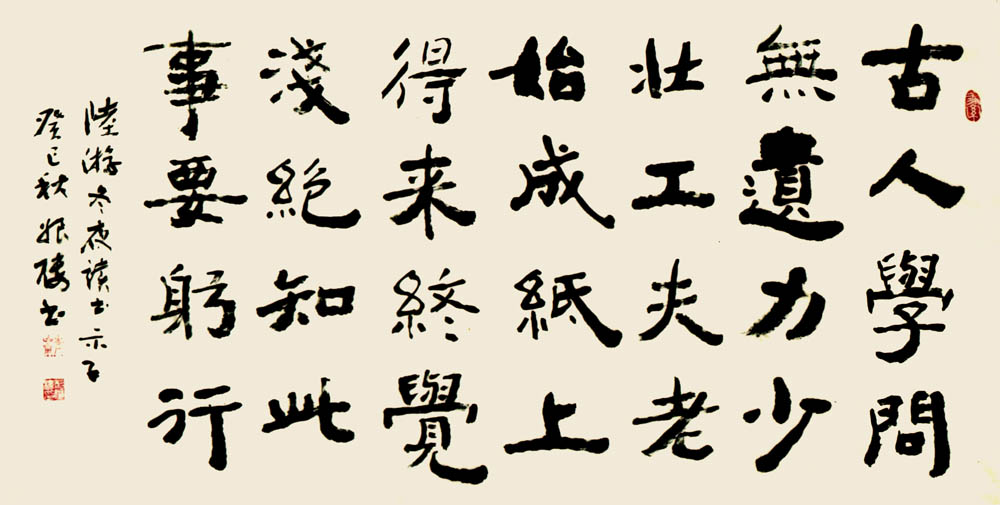 古人學問
無遺力少
壯工夫老
始成紙上
得来終覺
淺絕知此
事要躬行
陸游冬夜讀书示子
癸巳秋振